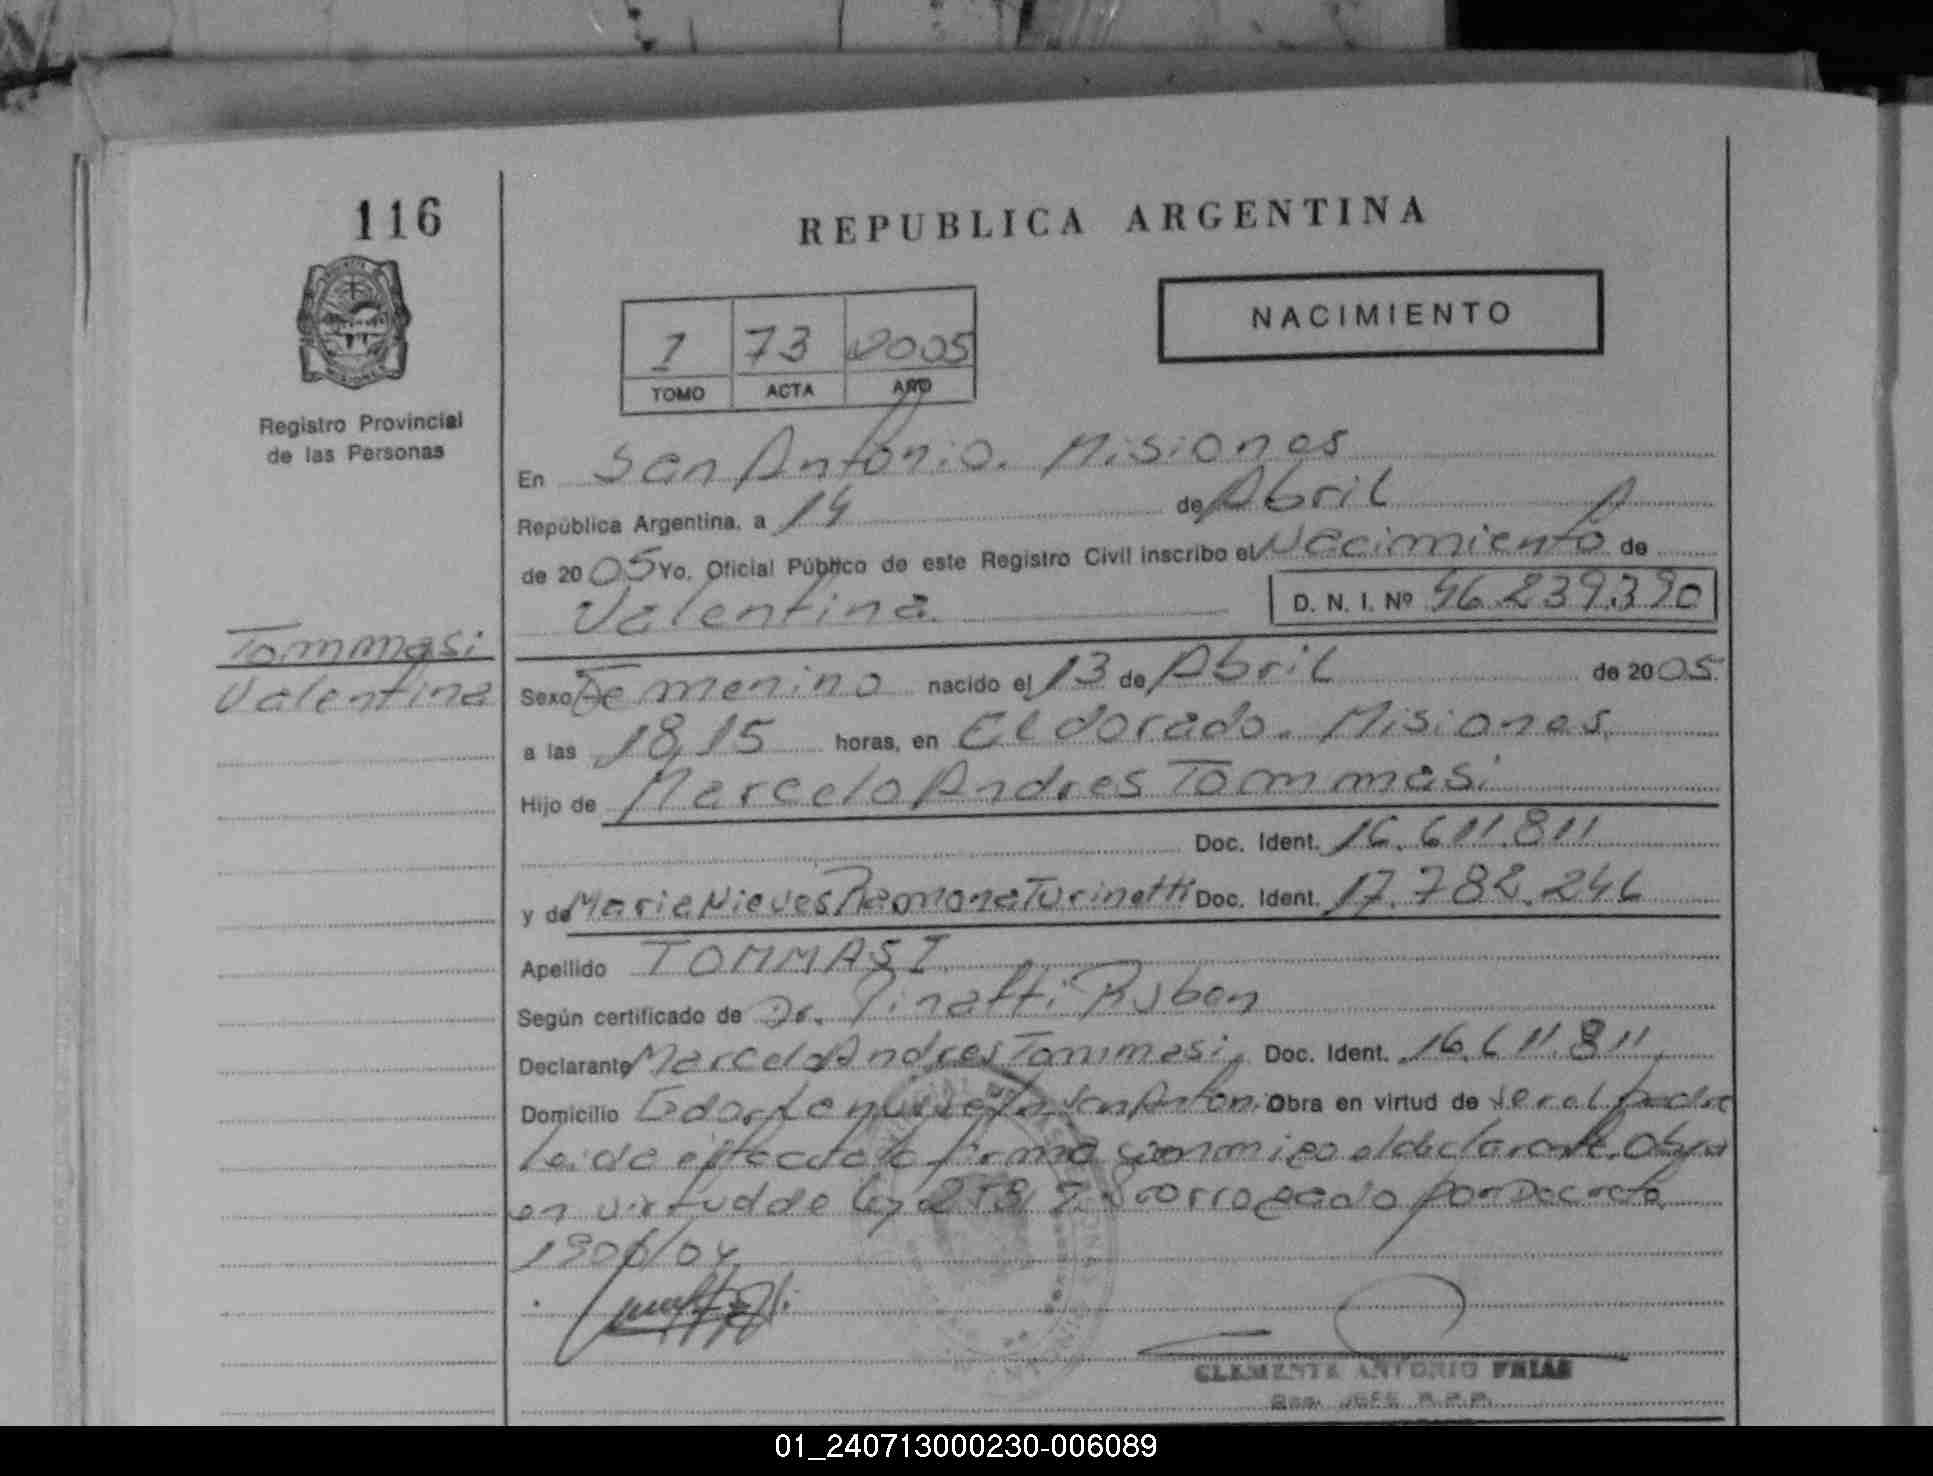 116
REPUBLICA ARGENTINA
NACIMIENTO
1 73 2005
TOMO ACTA AÑO
Registro Provincial
de las Personas
En San Antonio. Misiones
República Argentina, a 14 de Abril
de 2005 Yo, Oficial Público de este Registro Civil inscribo el Nacimiento de
Valentina
D. N. I. Nº 46.239.390
Tommasi
Valentina
Sexo Femenino nacido el 13 de Abril de 2005
a las 18,15 horas, en Eldorado. Misiones.
Hijo de Marcelo Andres Tommasi
Doc. Ident. 16.611.811
y de Maria Nieves Ramona Turinetti Doc. Ident. 17.782.246
Apellido TOMMASI
Según certificado de Dr. Pinatti Ruben
Declarante Marcelo Andres Tommasi. Doc. Ident. 16.611.811
Domicilio San Antonio Obra en virtud de ser el padre
Leida el acta la firma conmigo el declarante. Obra
en virtud de ley prorrogado por Decreto
CLEMENTE ANTONIO FRIAS
JEFE R.P.P.
01_240713000230-006089